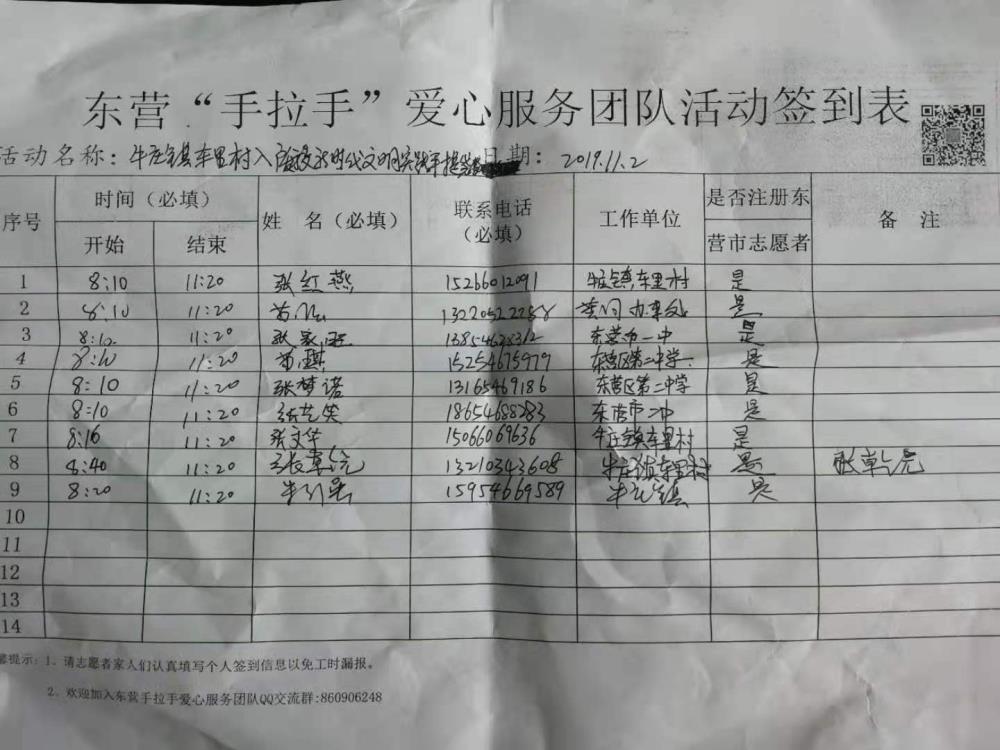 东营“手拉手”爱心服务团队活动签到表
活动名称：牛庄镇车里村入 时代文明实践 日期：2019.11.2
序号 时间（必填） 姓 名（必填） 联系电话（必填） 工作单位 是否注册东营市志愿者 备 注
开始 结束
1 8:10 11:20 张红燕 15266012091 牛庄镇车里村 是
2 8:10 11:20 13220522258 办事处 是
3 8:10 11:20 东营市一中 是
4 8:10 11:20 15254675979 东营区第二中学 是
5 8:10 11:20 张梦诺 13165469186 东营区第二中学 是
6 8:10 11:20 18654688283 东营市二中 是
7 8:16 11:20 张文华 15066069636 牛庄镇车里村 是
8 8:40 11:20 13210343608 牛庄镇车里村 是 张乾
9 8:20 11:20 15954669589 牛庄镇 是
10
11
12
13
14
馨提示：1、请志愿者家人们认真填写个人签到信息以免工时漏报。
2、欢迎加入东营手拉手爱心服务团队QQ交流群:860906248